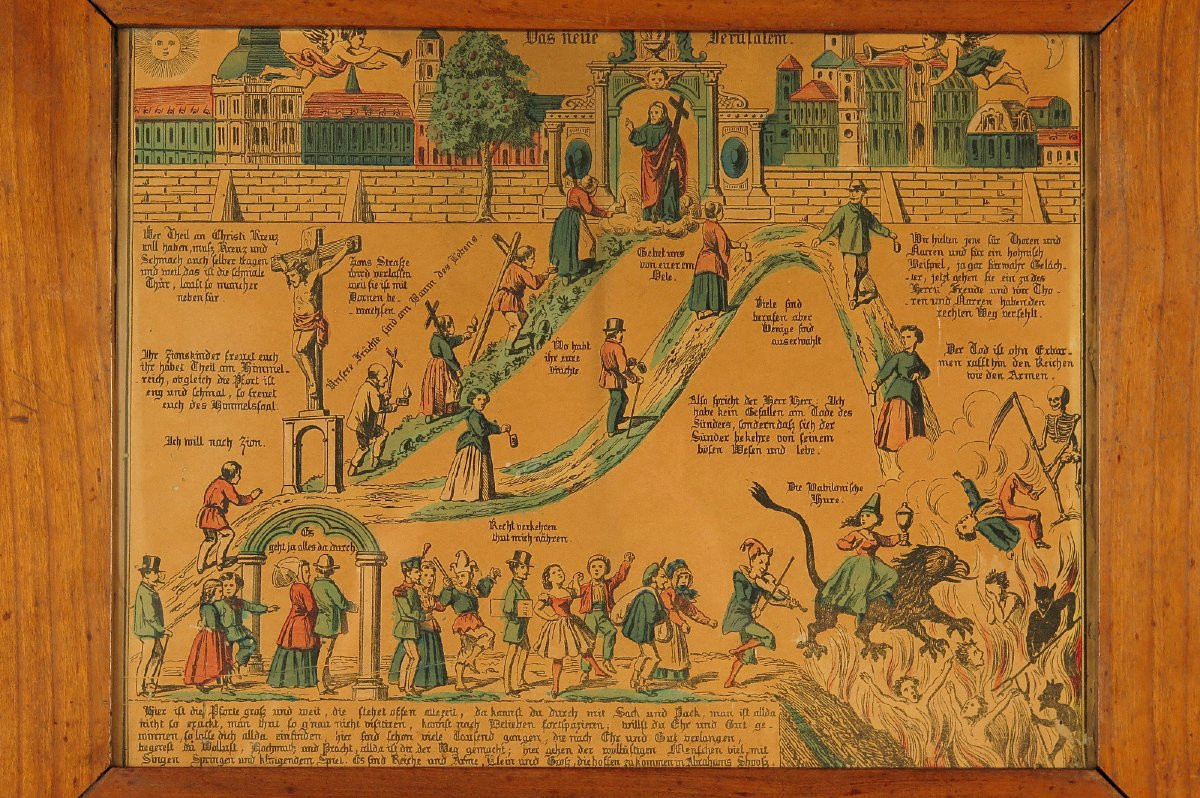 Das neue Jerusalem.
Wer Theil an Christi Kreuz
will haben, muß Kreuz und
Schmach auch selber tragen
und weil das ist die schmale
Thür, lauft so mancher
neben für.
Zions Straße
wird verlassen
weil sie ist mit
Dornen be-
-wachsen
Unsere Früchte sind am Baum des Lebens
Gebet uns
von eurem
Oele.
Wir hielten jene für Thoren und
Narren und für ein höhnisch
Beispiel, ja gar fürwahr Geläch-
ter, jetzt gehen sie ein zu des
Herrn Freude und wir Tho-
-ren und Narren haben den
rechten Weg verfehlt.
Viele sind
berufen aber
Wenige sind
auserwählt
Wo habt
ihr eure
Früchte
Ihr Zionskinder freuet euch
ihr habet Theil am Himmel-
reich, obgleich die Pfort ist
eng und schmal, so freuet
euch des Himmelssaal
Der Tod ist ohn Erbar-
men rafft hin den Reichen
wie den Armen.
Also spricht der Herr Herr: Ich
habe kein Gefallen am Tode des
Sünders, sondern daß sich der
Sünder bekehre von seinem
bösen Wesen und lebe.
Ich will nach Zion.
Die Babilonische
Hure.
Recht verkehren
thut mich nähren.
Es
geht ja alles da durch
Hier ist die Pforte groß und weit, die stehet offen allezeit, da kannst du durch mit Sack und Pack, man ist allda
nicht so exackt, man thut so g'nau nicht visitiren, kannst nach Belieben fortspazieren; willst du Ehr und Gut ge-
winnen, so lasse dich allda einfinden, hier sind schon viele Tausend gangen, die nach Ehr und Gut verlangen,
begerest du Wollust, Hochmuth und Pracht, allda ist dir der Weg gemacht; hier gehen der wollüstigen Menschen viel, mit
Singen Springen und klingendem Spiel. Es sind Reiche und Arme, Klein und Groß, die hoffen zu kommen in Abrahams Schooß.